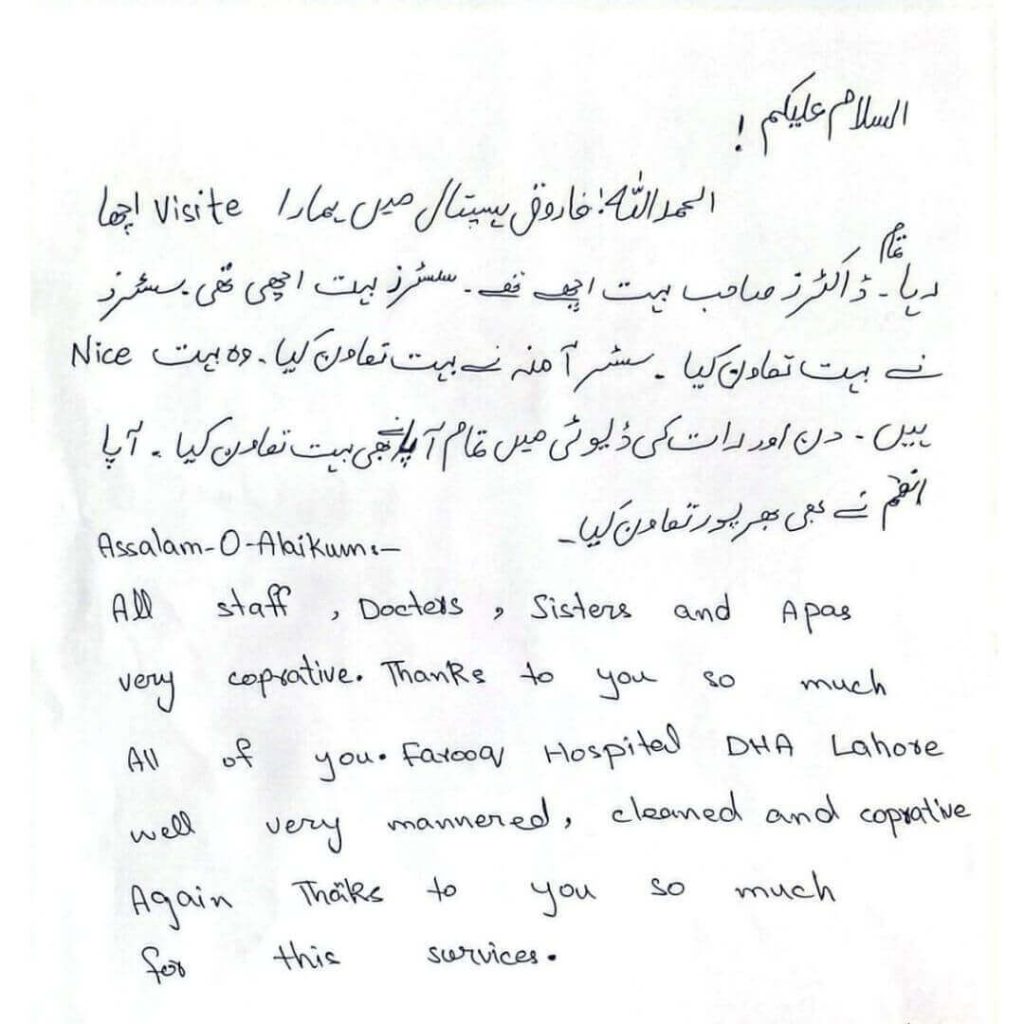 السلام علیکم !
الحمدللہ! فاروق ہسپتال میں ہمارا Visite اچھا
رہا۔ تمام ڈاکٹرز صاحب بہت اچھے تھے۔ سسٹرز بہت اچھی تھی۔ سسٹرز
نے بہت تعاون کیا۔ سسٹر آمنہ نے بہت تعاون کیا۔ وہ بہت Nice
ہیں۔ دن اور رات کی ڈیوٹی میں تمام آپا نے بھی بہت تعاون کیا۔ آپا
انعم نے بھی بھرپور تعاون کیا۔
Assalam-O-Alaikum:-
All staff , Docters , Sisters and Apas
very coprative. Thanks to you so much
All of you. Farooq Hospital DHA Lahore
well very mannered, cleaned and coprative
Again Thanks to you so much
for this survices.